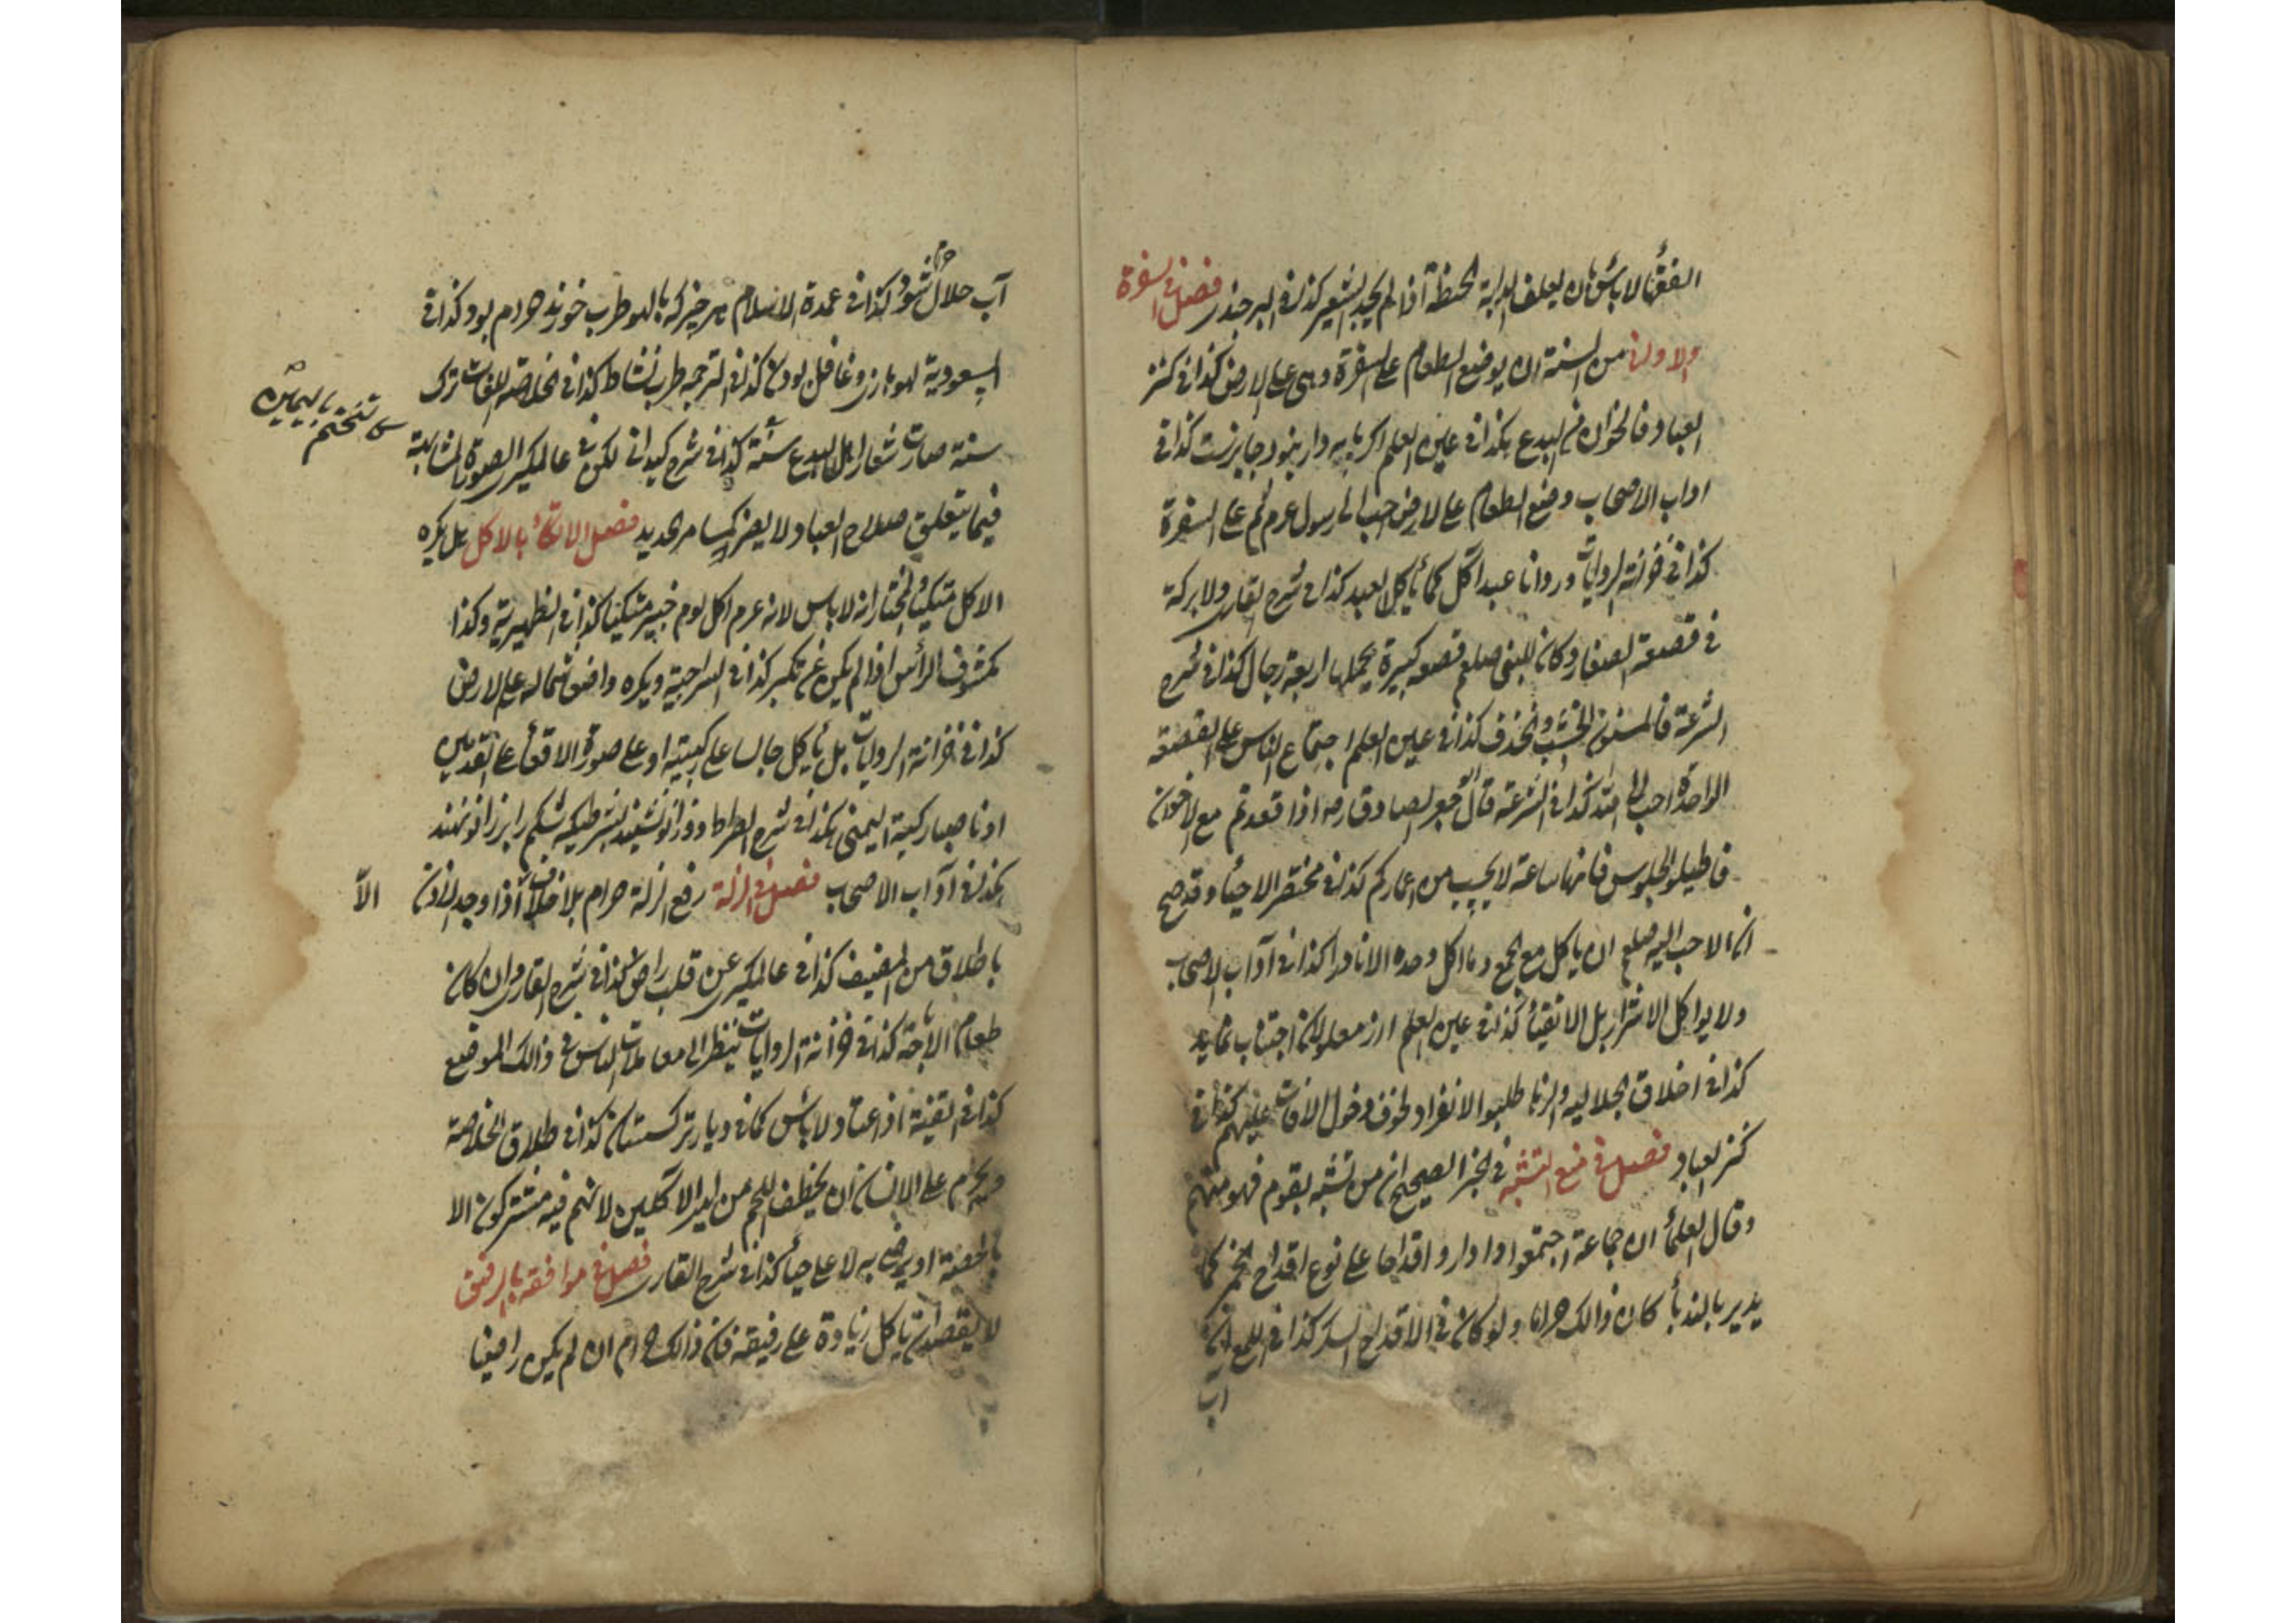 الفقهأ لا بأس بان يعلف الدابة الحنطة اذا لم يجد الشعير كذا في البرجندى فصل في السفرة
والاولى من السنة ان يوضع الطعام على السفرة وهى على الارض كذا في كنز
العباد فالخوان من البدع كذا في عين العلم اكر پايه دار نبود جايزست كذا في
اداب الاصحاب وضع الطعام على الارض احب الى رسول عرم ثم على السفرة
كذا في خزانة الروايات ورد انا عبد اكل كما يأكل العبد كذا في شرح القارى ولا بركة
في قصعة الصغار وكان للنبى صلعم قصعه كبيرة يحملها اربعة رجال كذا في شرح
الشرعة فالمسنون الخشب والخذف كذا في عين العلم اجتماع الناس على القصعة
الواحدة احب الى الله كذا في الشرعة قال جعفر الصادق رح اذا قعدتم مع الاخوان
فاطيلوا الجلوس فانها ساعة لا يحسب من اعماركم كذا في مختصر الاحيأ وقد صح
ان الاحب اليه صلعم ان ياكل مع الجمع وما اكل وحده الا نادرا كذا في آداب الاصحاب
ولا يواكل الاشرار بل الاتقيأ كذا في عين العلم از معلولان اجتناب نمايد
كذا في اخلاق الجلاليه والزنا طلبوا الانفراد لخوف دخول الافات عليهم كذا في
كنز العباد فصل في منع التشبه في الخبر الصحيح ان من تشبه بقوم فهو منهم
وقال العلمأ ان جماعة اجتمعوا واداروا اقداحا على نوع اقداح الخمر كما
يدير بالندبأ كان ذالك حراما ولو كان في الاقداح السكر كذا في اللمع
اب
آب حلال شود كذا في عمدة الاسلام هر چيز كه با لهو طرب خورند حرام بود كذا في
حرام
المسعودية لهو بازى وغافل بودن كذا في الترجمه طرب نشاط كذا في خلاصة اللغات ترك
سنة صارت شعار اهل البدع سنة كذا في شرح كيدانى لكن في عالمكيرى الصورة المشابهة
كا تختم باليمين
فيما يتعلق صلاح العباد لا يضر كمسامر الحديد فصل الاتكأ بالاكل بل يكره
الاكل متكيا والمختار انه لا باس لانه عرم اكل يوم خيبر متكيا كذا في الظهيرية وكذا
مكشوف الرأس اذا لم يكن عن تكبر كذا في السراجية ويكره واضعا شماله على الارض
كذا في خزانة الروايات بل يأكل جالسا على ركبتيه او على صورة الاقعأ على القدمين
او ناصبا ركبة اليمنى كذا في شرح الصراط ودوزانو نشيند بشرطيكه شكم را بر زانو ننهند
كذا في آداب الاصحاب فصل في الزلة رفع الزلة حرام بلا خلاف اذا وجد الاذن
الاّ
باطلاق من المضيف كذا في عالمكيرى عن قلب راض كذا في شرح القارى وان كان
طعام الاباحة كذا في خزانة الروايات ينظر الى معاملات الناس في ذالك الموضع
كذا في القنية اذا اعتاد لا بأس كما في ديار تركستان كذا في طلاق الخلاصة
ويحرم على الانسان ان يخطف اللحم من ايدى الاكلين لانهم فيه مشتركون الا
بالحصة او يرضى به لا على حيأ كذا في شرح القارى فصل في موافقة بالرفيق
لا يقصد ان يأكل زيادة على رفيقه فان ذالك حرام ان لم يكن راضيا